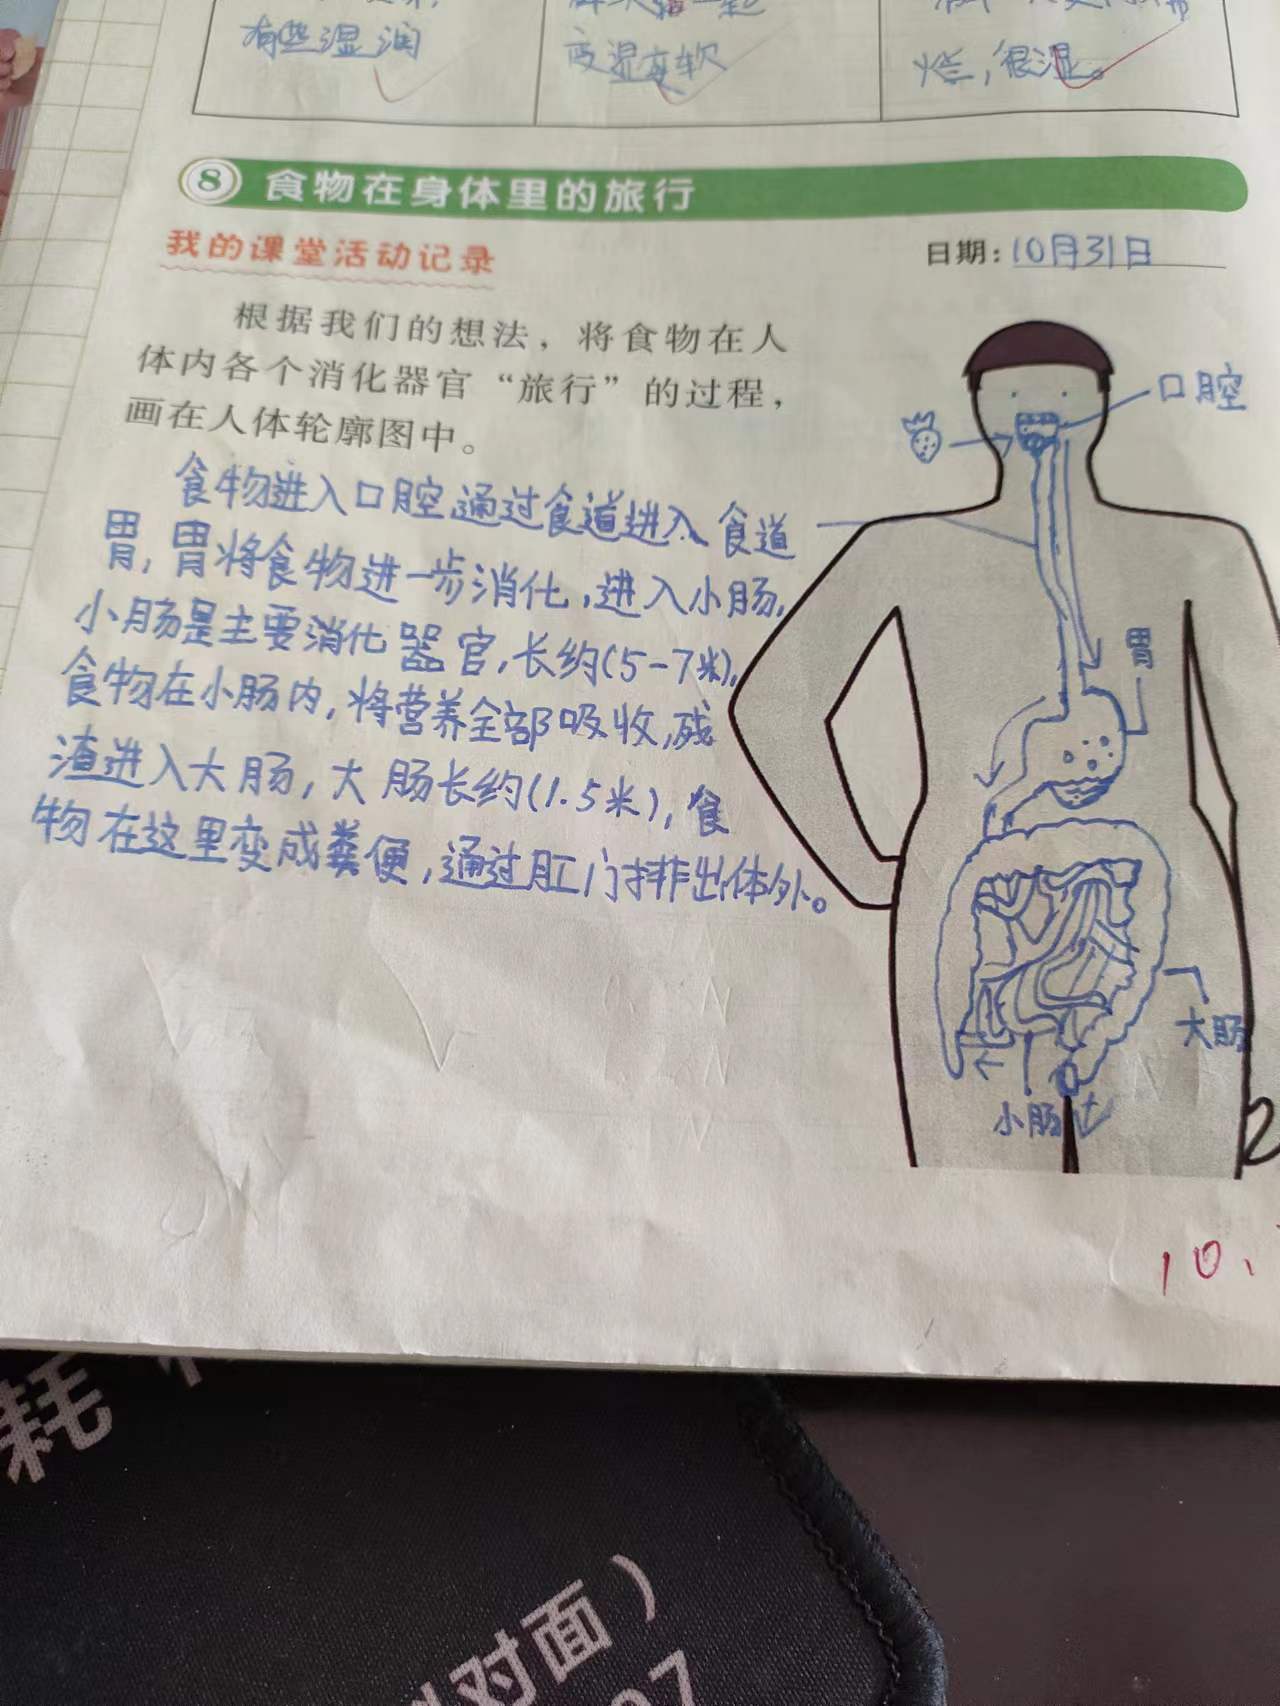 有些湿润
变湿变软
烂，很湿。
8 食物在身体里的旅行
我的课堂活动记录
日期：10月31日
根据我们的想法，将食物在人
体内各个消化器官“旅行”的过程，
画在人体轮廓图中。
食物进入口腔，通过食道进入
胃，胃将食物进一步消化，进入小肠，
小肠是主要消化器官，长约(5-7米)，
食物在小肠内，将营养全部吸收，残
渣进入大肠，大肠长约(1.5米)，食
物在这里变成粪便，通过肛门排出体外。
口腔
食道
胃
大肠
小肠
10.
耗
对面）
07